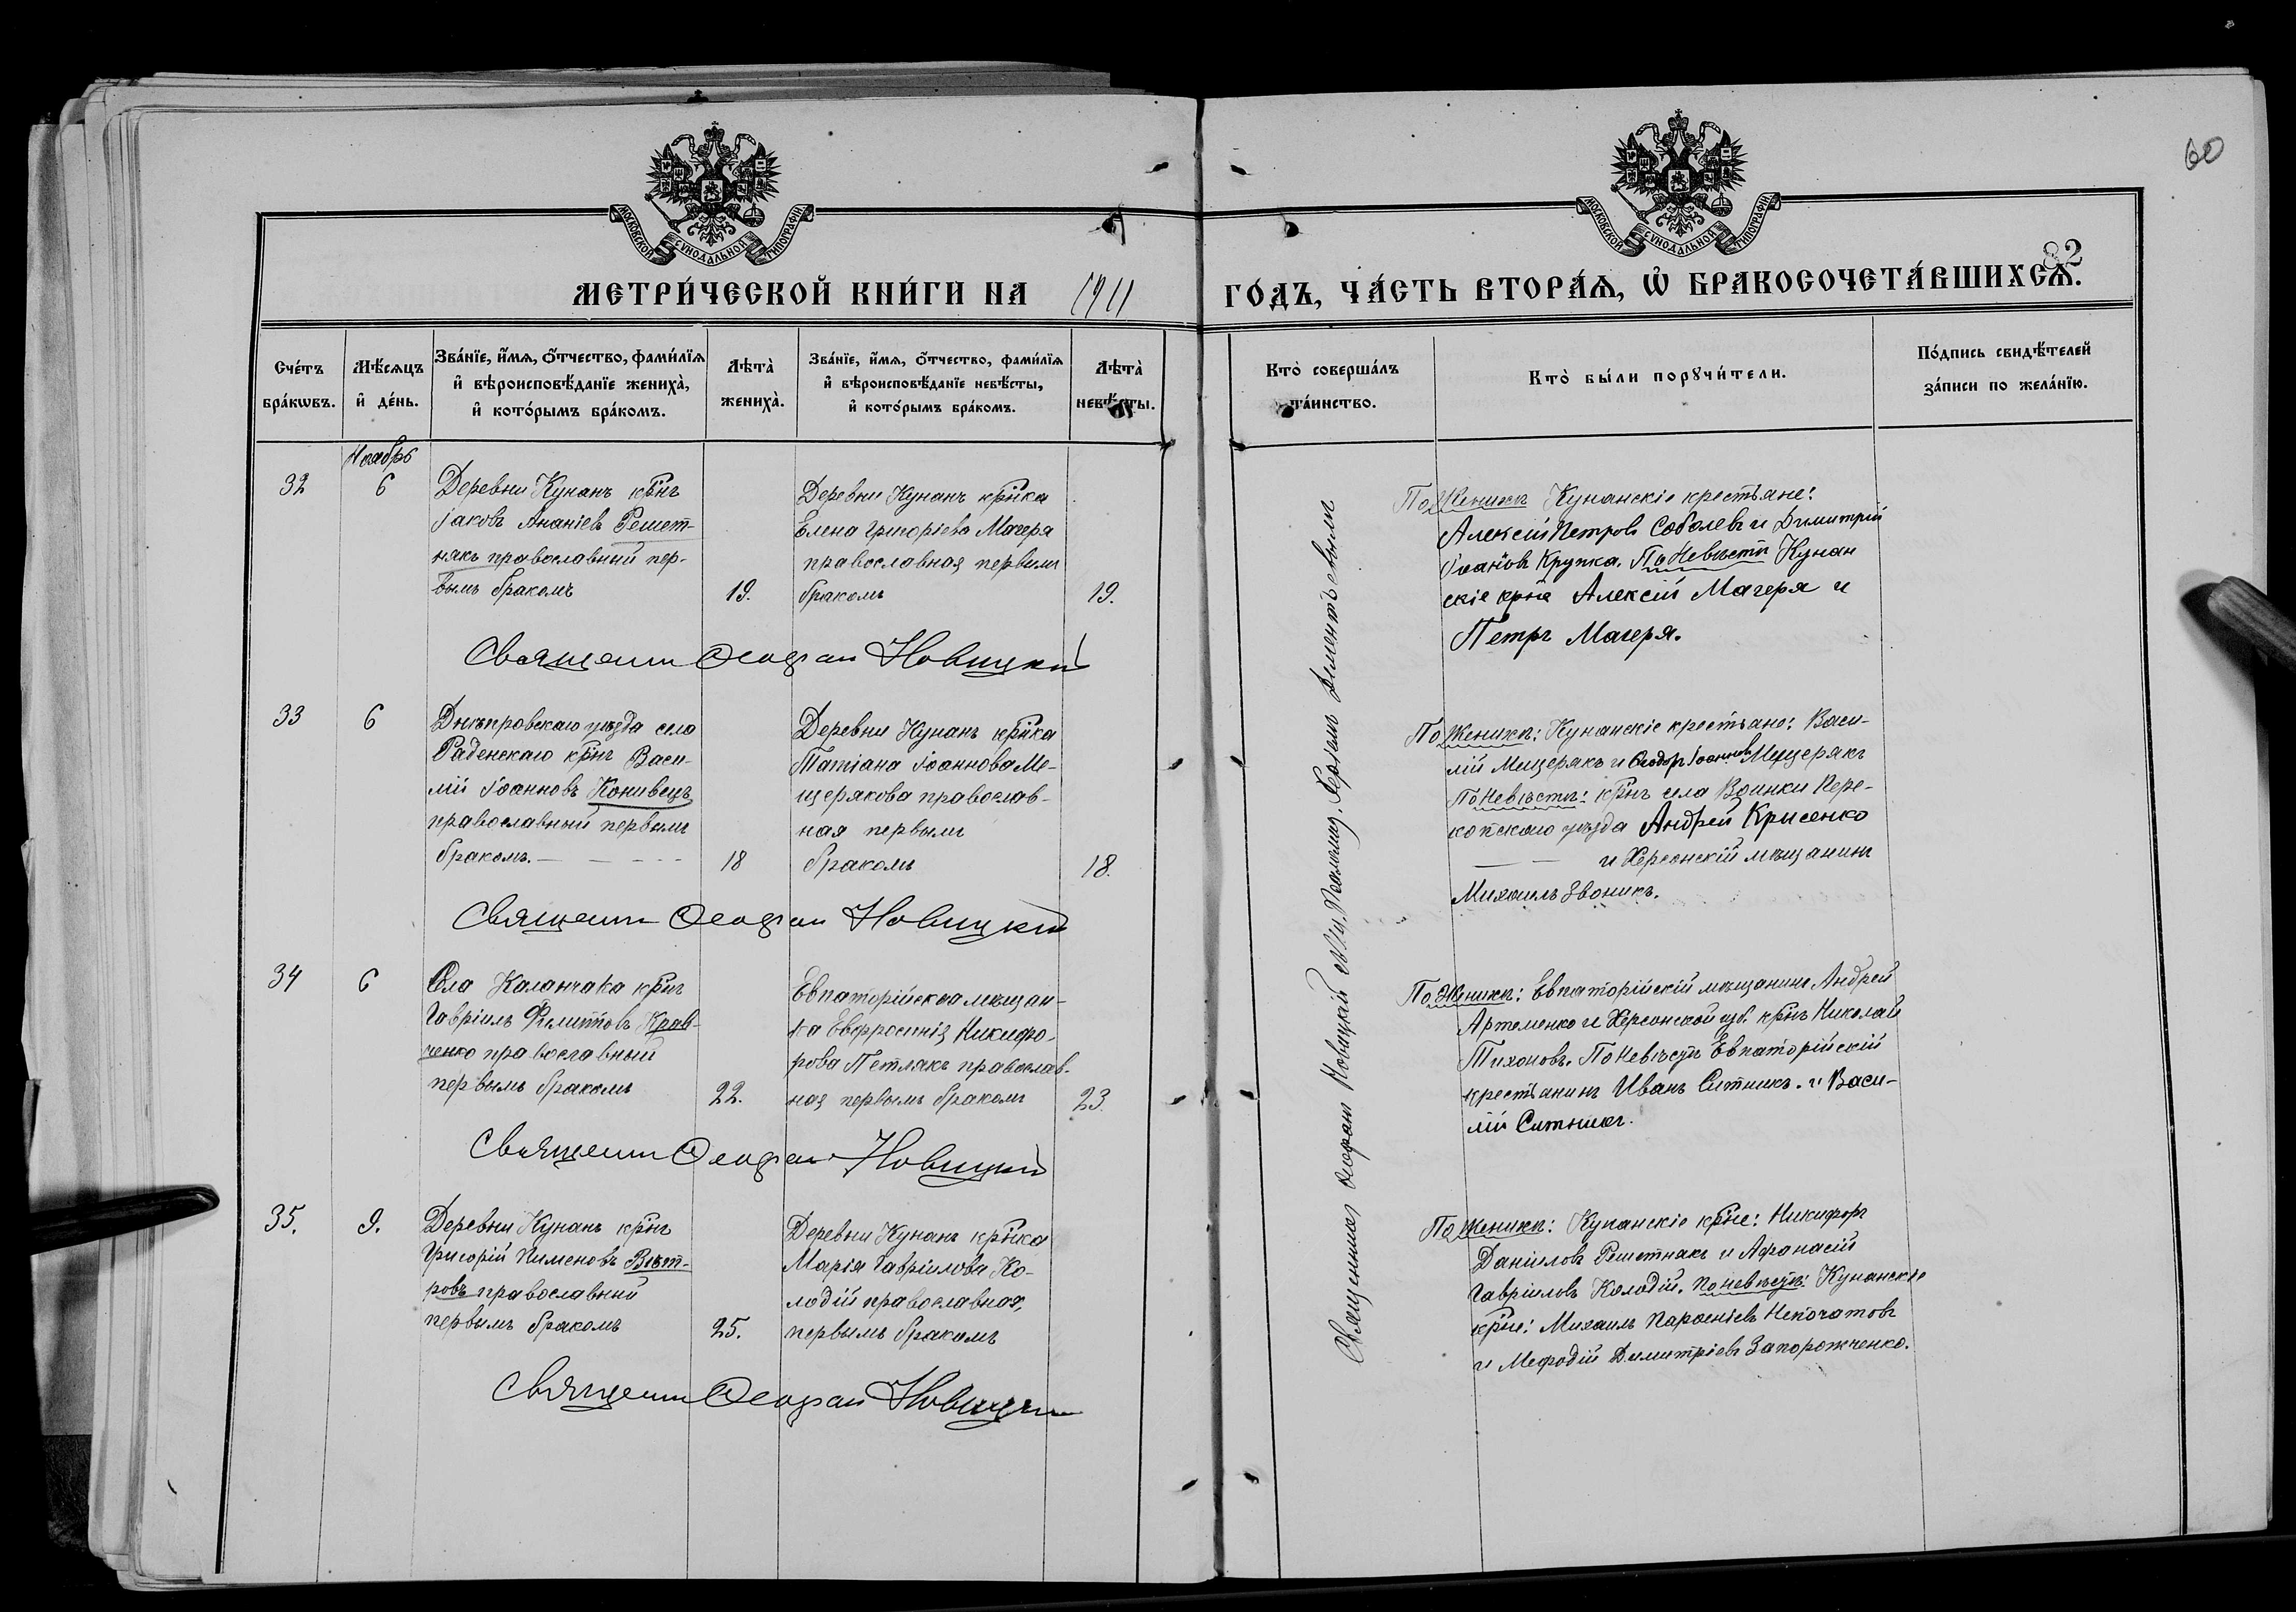 60
82
МОСКОВСКОЙ СѴНОДАЛЬНОЙ ТИПОГРАФІИ
МОСКОВСКОЙ СѴНОДАЛЬНОЙ ТИПОГРАФІИ
МЕТРИ́ЧЕСКОЙ КНИ́ГИ НА 1911 ГО́ДЪ, ЧА́СТЬ ВТОРА́Ѧ, Ѡ БРАКОСОЧЕТА́ВШИХСѦ.
Сче́тъ бра́кѡвъ.
Мѣ́сяцъ и де́нь.
Зва́нїе, и́мѧ, о́тчество, фами́лїѧ
и вѣроисповѣ́данїе жениха̀,
и кото́рымъ бра́комъ.
Лѣта̀ жениха̀.
Зва́нїе, и́мѧ, о́тчество, фами́лїѧ
и вѣроисповѣ́данїе невѣ́сты,
и кото́рымъ бра́комъ.
Лѣта̀ невѣ́сты.
Кто̀ соверша́лъ та́инство.
Кто̀ бы́ли порꙋчи́тели.
По́дпись свидѣ́телей
за́писи по жела́нїю.
Ноябрь
32
6
Деревни Кунанъ крнъ
Іаковъ Ананіевъ Решет-
някъ православный пер-
вымъ бракомъ
19.
Деревни Кунанъ крнка
Елена Григоріева Магеря
православная первымъ
бракомъ
19.
По Женихѣ Кунанскіе крестьяне:
Алексій Петровъ Соболевъ и Димитрій
Іоановъ Крупка. По Невѣстѣ Кунан
скіе крне Алексій Магеря и
Петръ Магеря.
Священн Ѳеофан Новицкій
33
6
Днѣпровскаго уѣзда село
Раденскаго крнъ Васи-
лій Іоанновъ Конивецъ
православный первымъ
бракомъ.
18
Деревни Кунанъ крнка
Татіана Іоаннова Ме-
щерякова православ-
ная первымъ
бракомъ
18.
По Женихѣ: Кунанскіе крестьяне: Васи-
лій Мищерякъ и Ѳеодоръ Іоанновъ Мещерякъ
По Невѣстѣ: крнъ села Воинки Пере-
копскаго уѣзда Андрей Крисенко
и Херсонскій мѣщанинъ
Михаилъ Звоникъ.
Священн Ѳеофан Новицкій
34
6
Села Каланчака крнъ
Гавріилъ Филипповъ Крав-
ченко православный
первымъ бракомъ
22.
Евпаторійская мѣщан-
ка Евфросинія Никифо-
рова Петлякъ православ-
ная первымъ бракомъ
23.
По Женихѣ: Евпаторійскій мѣщанинъ Андрей
Артеменко и Херсонской губ. крнъ Николай
Тихоновъ. По Невѣстѣ Евпаторійскій
крестьянинъ Иванъ Ситникъ. и Васи-
лій Ситникъ.
Священн Ѳеофан Новицкій
35.
9.
Деревни Кунанъ крнъ
Григорій Пименовъ Вѣт-
ровъ православный
первымъ бракомъ
25.
Деревни Кунанъ крнка
Марія Гавріилова Ко-
лодій православная,
первымъ бракомъ
По Женихѣ: Кунанскіе крне: Никифоръ
Даніиловъ Решетнакъ и Афанасій
Гавріиловъ Колодій. По невѣстѣ: Кунанскіе
крне: Михаилъ Парѳеніевъ Непочатовъ
и Мефодій Димитріевъ Запорожченко.
Священн Ѳеофан Новицкій
Священникъ Ѳеофан Новицкій съ Псаломщ. Сергіемъ Дементьевымъ